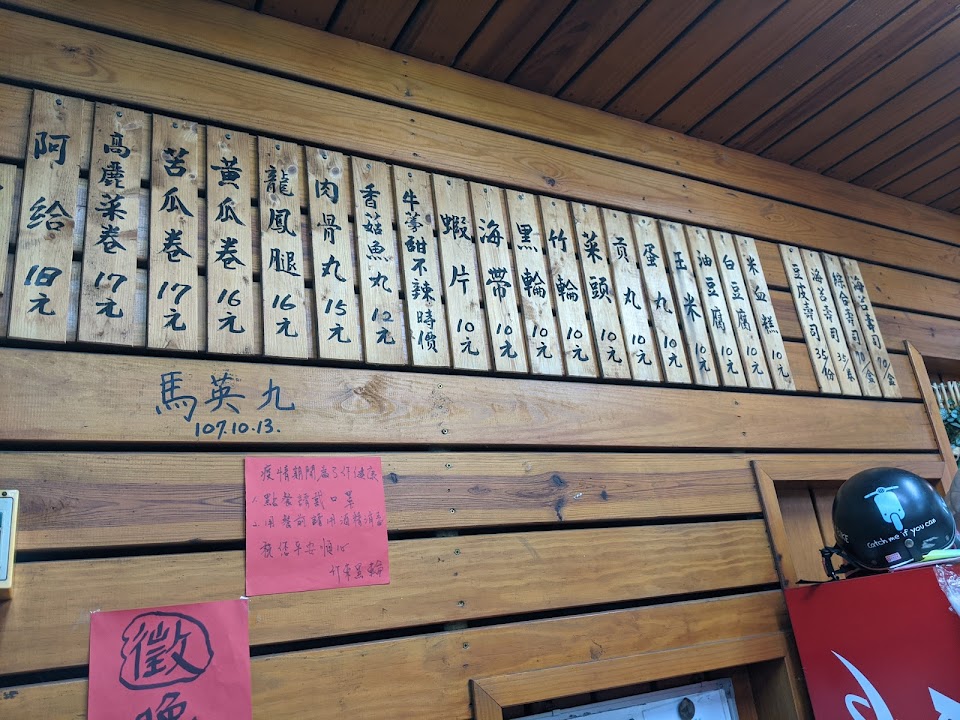 阿給 18元
高麗菜卷 17元
苦瓜卷 17元
黃瓜卷 16元
龍鳳腿 16元
肉骨丸 15元
香菇魚丸 12元
牛蒡甜不辣 時價
蝦片 10元
海帶 10元
黑輪 10元
竹輪 10元
菜頭 10元
貢丸 10元
蛋丸 10元
玉米 10元
油豆腐 10元
白豆腐 10元
米血糕 10元
豆皮壽司 35/份
海苔壽司 35/條
綜合壽司 70/盒
海苔壽司 70/盒
馬英九
107.10.13.
疫情期間,為了你健康
1.點餐請戴口罩
2.用餐前請用酒精消毒
徵
晚
catch me if you can